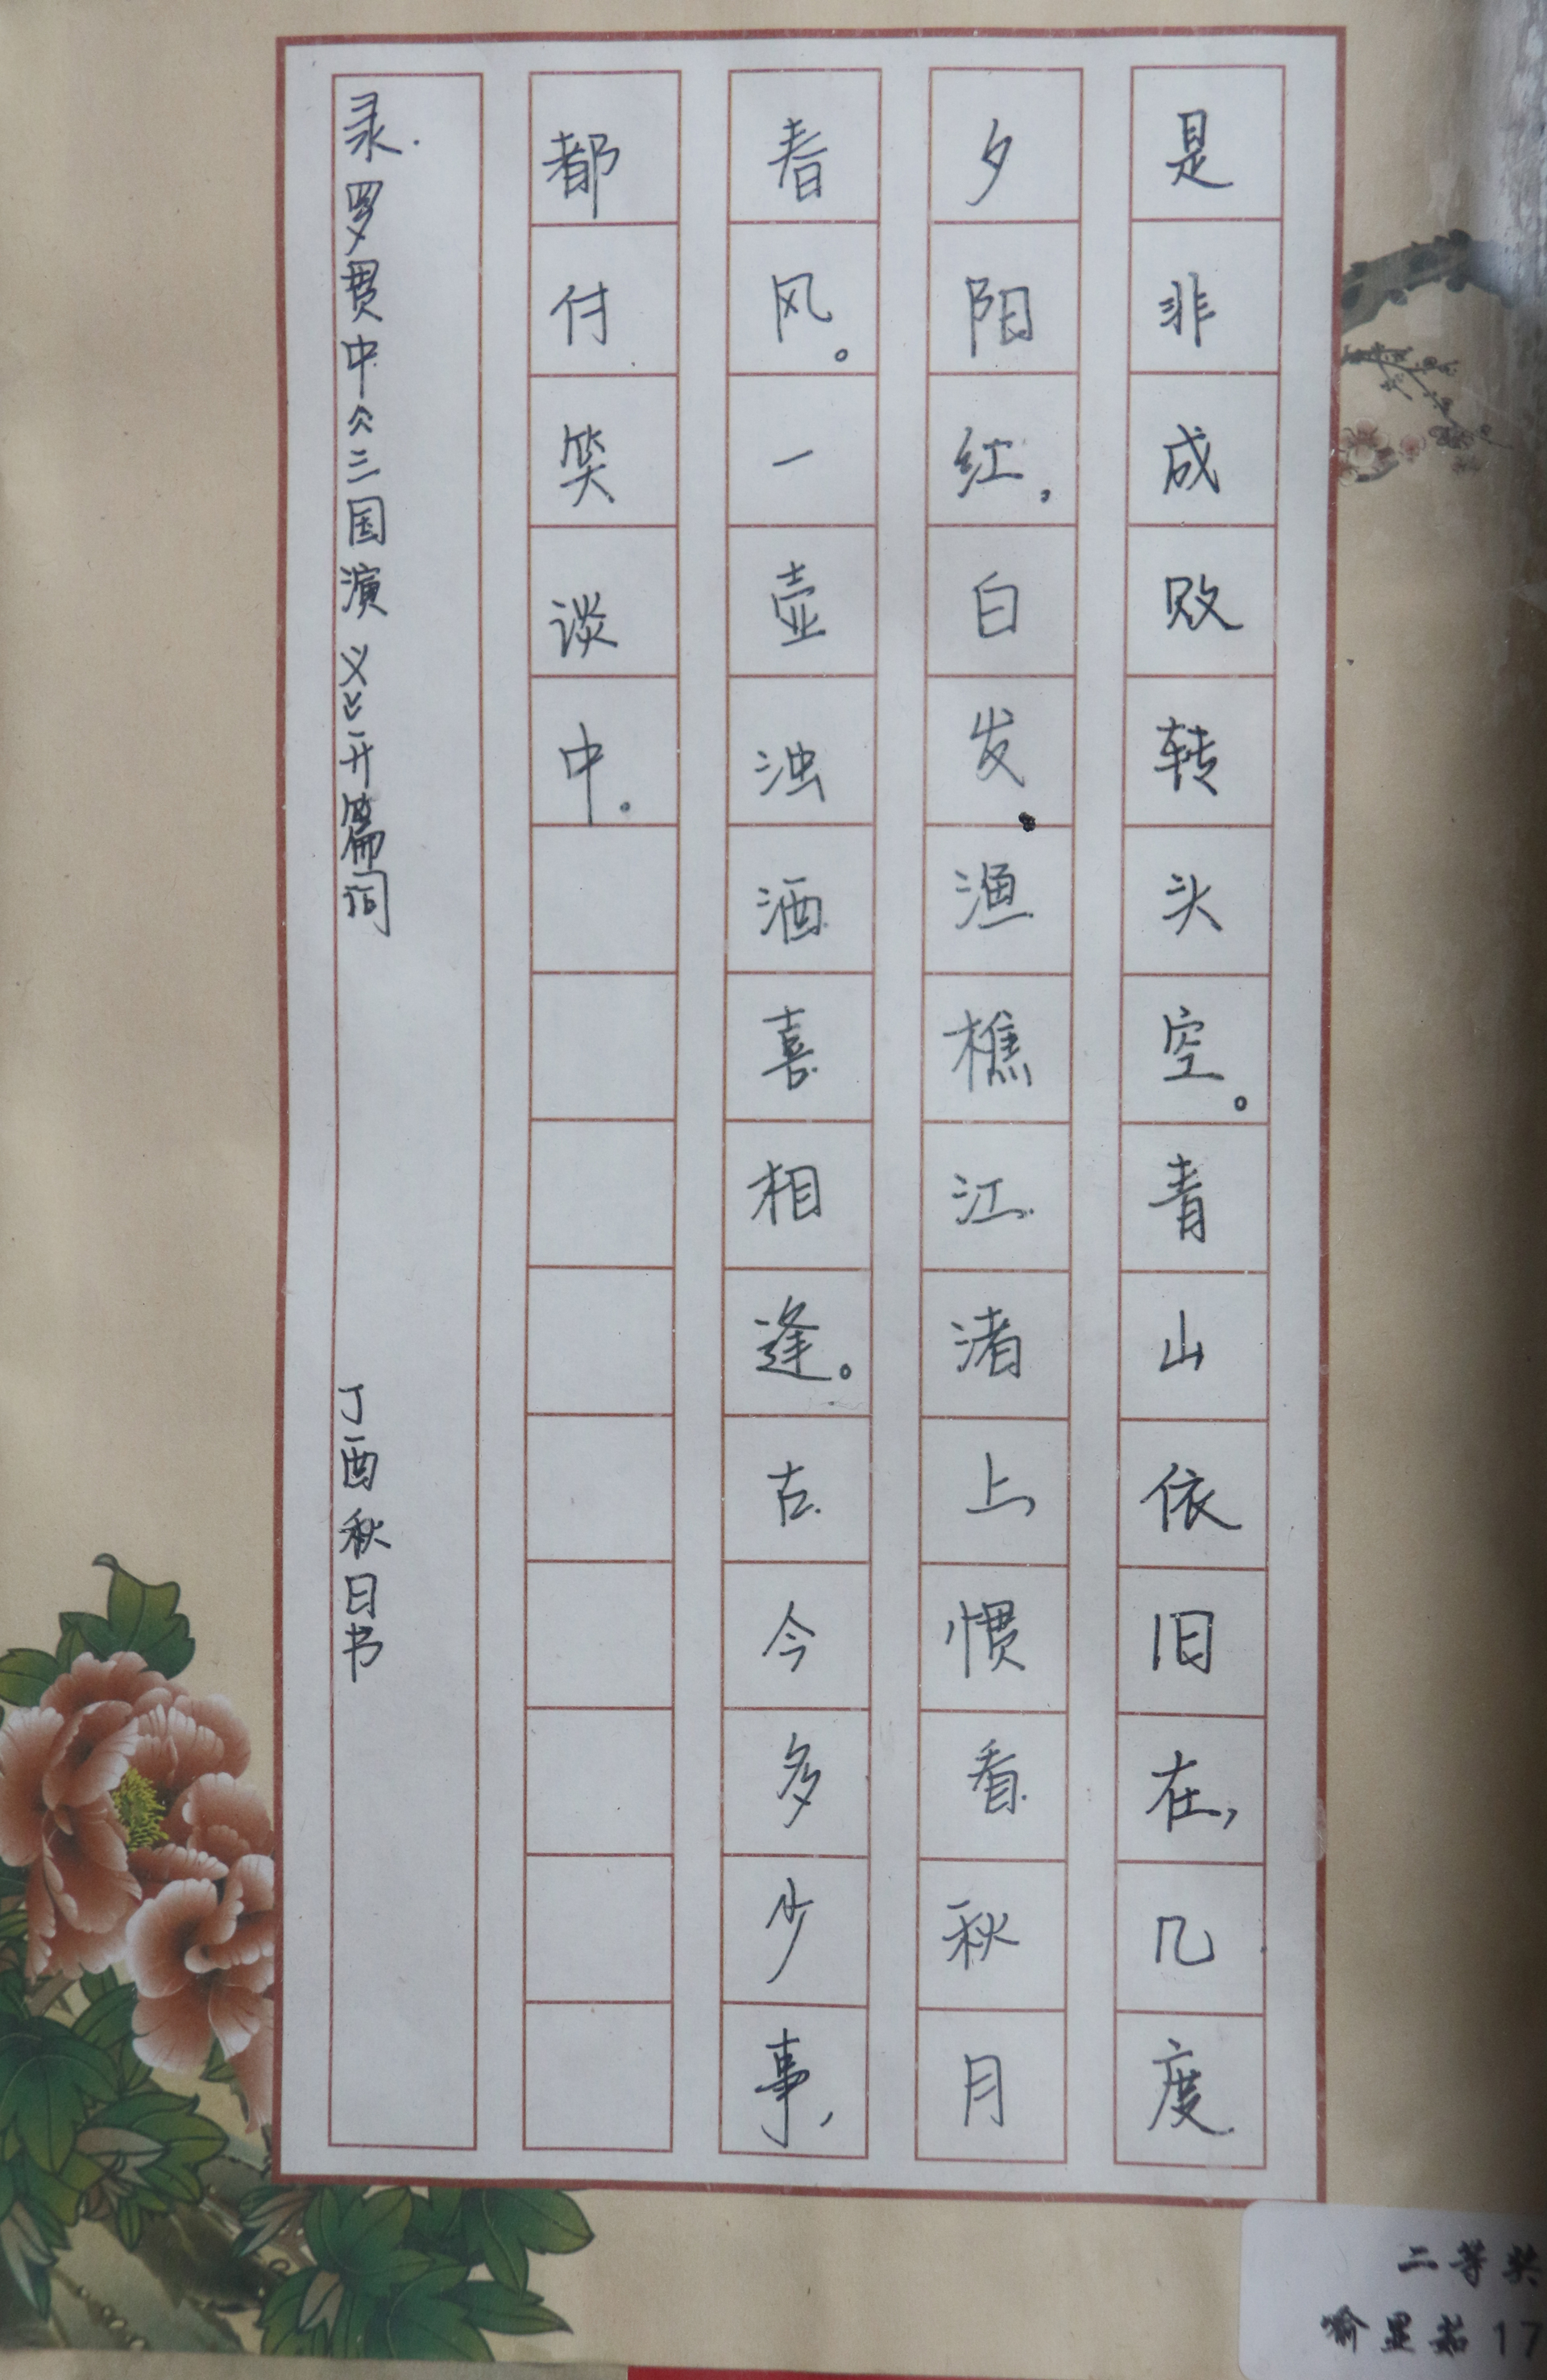 是非成败转头空。青山依旧在,几度
夕阳红,白发渔樵江渚上,惯看秋月
春风。一壶浊酒喜相逢。古今多少事,
都付笑谈中。
录罗贯中《三国演义》开篇词 丁酉秋日书
二等奖
喻 17